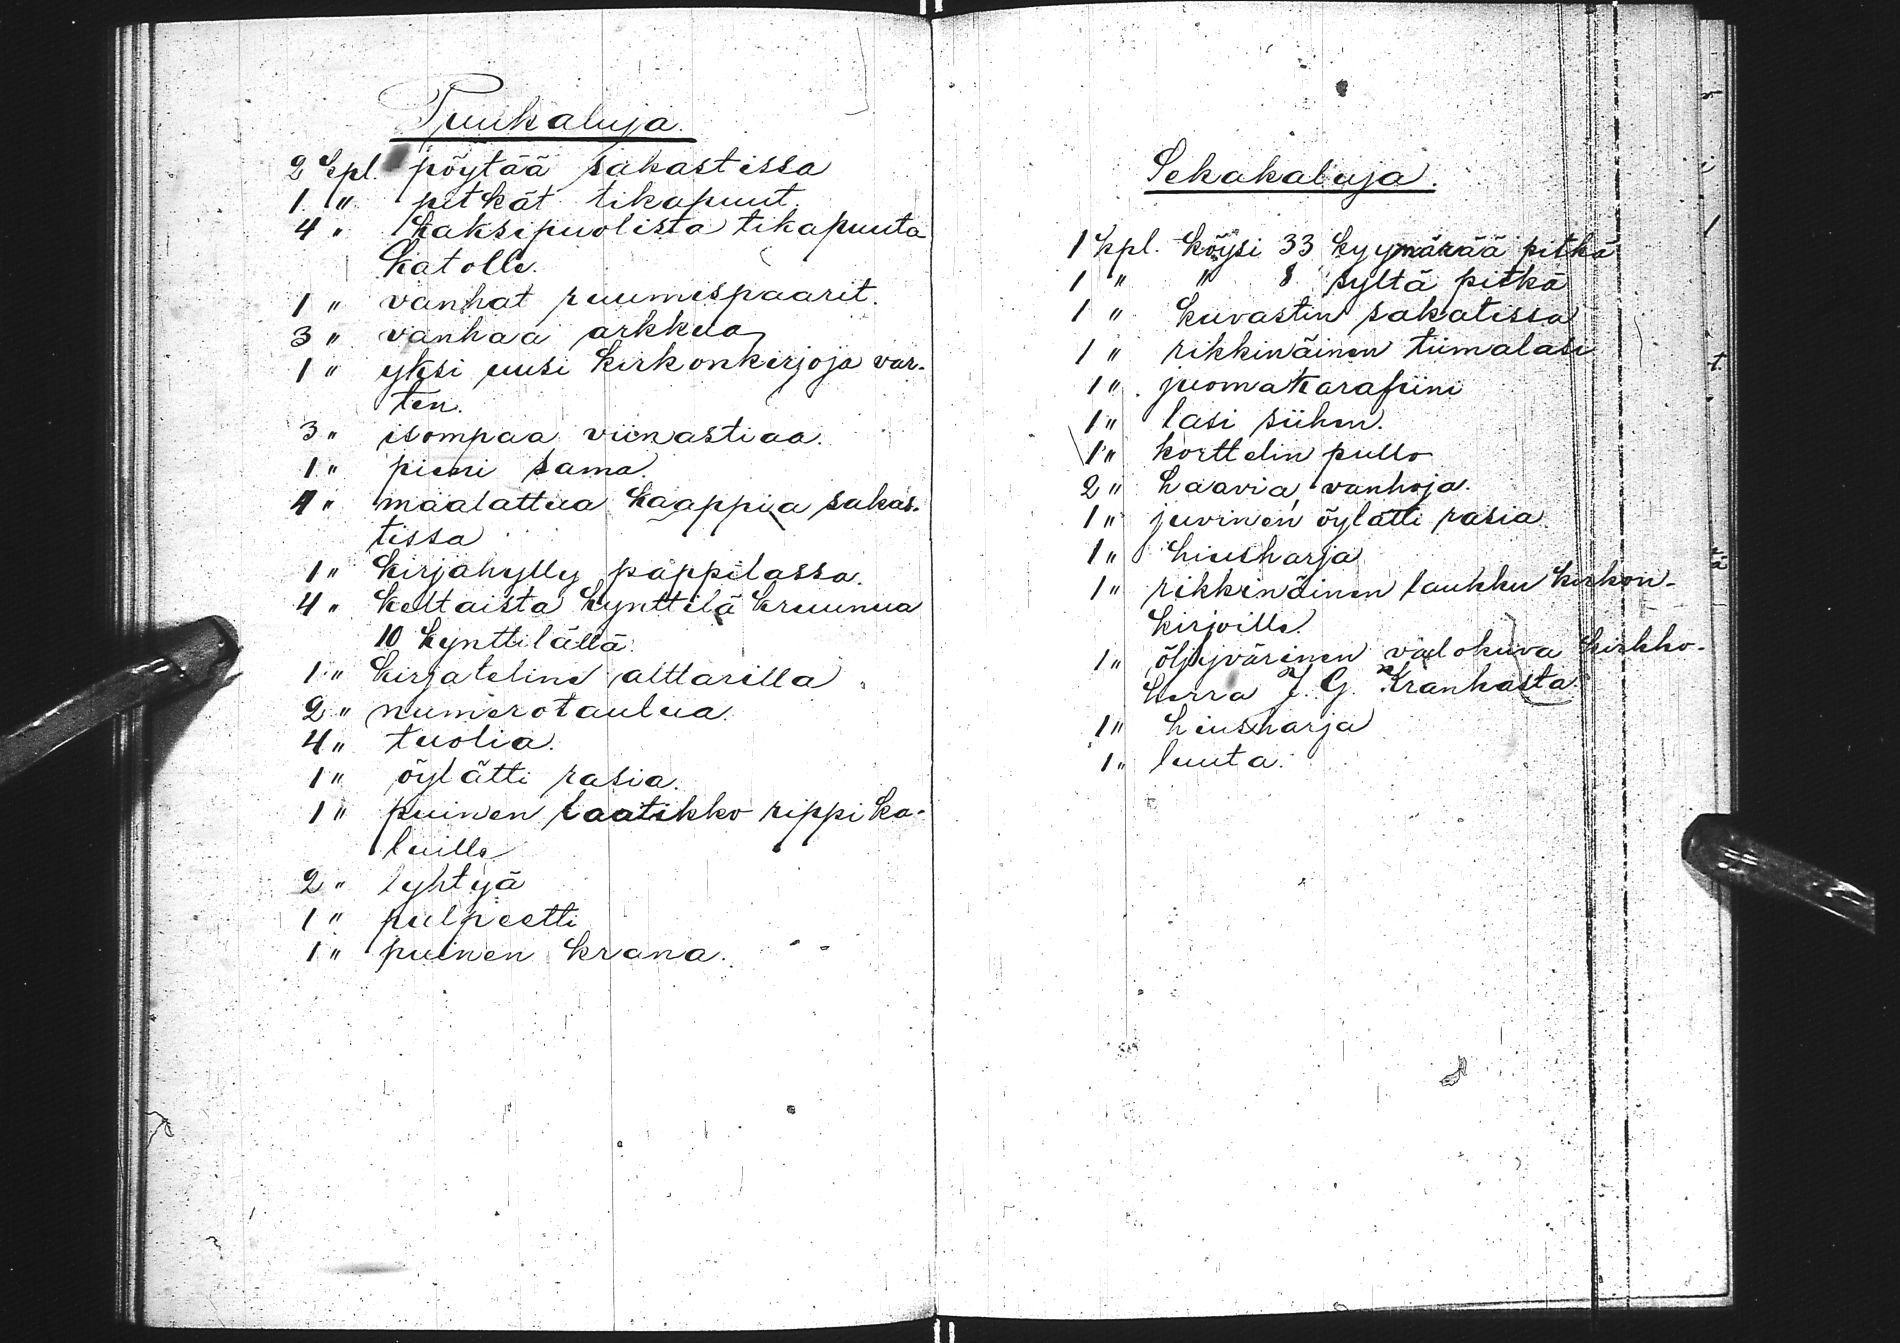 Puukaluja.
2 kpl. pöytää sakastissa
1 " pitkät tikapuut.
4 " kaksipuolista tikapuuta
katolle.
1 " vanhat ruumispaarit.
3 " vanhaa arkkua
1 " yksi uusi kirkonkirjoja var-
ten.
3 " isompaa viinastiaa.
1 " pieni sama
4 " maalattua kaappia sakas-
tissa
1 " kirjahylly pappilassa.
4 " keltaista kynttilä kruunua
10 kynttilällä.
1 " kirjateline alttarilla
2 " numerotaulua.
4 " tuolia.
1 " öylätti rasia.
1 " puinen laatikko rippi ka-
luille
2 " lyhtyä
1 " pulpeetti
1 " puinen krana.
Sekakaluja.
1 kpl. köysi 33 kyynärää pitkä
1 " " 8 syltä pitkä
1 " kuvastin sakatissa
1 " rikkinäinen tiimalasi
1 " juomakarafiini
1 " lasi siihen.
1 " korttelin pullo
2 " haavia, vanhoja.
1 " juurinen öylätti rasia.
1 " hiusharja
1 " rikkinäinen laukku kirkon-
kirjoille.
1 " öljyvärinen valokuva kirkko-
herra J. G. Krankasta
1 " hiusharja
1 " luuta.